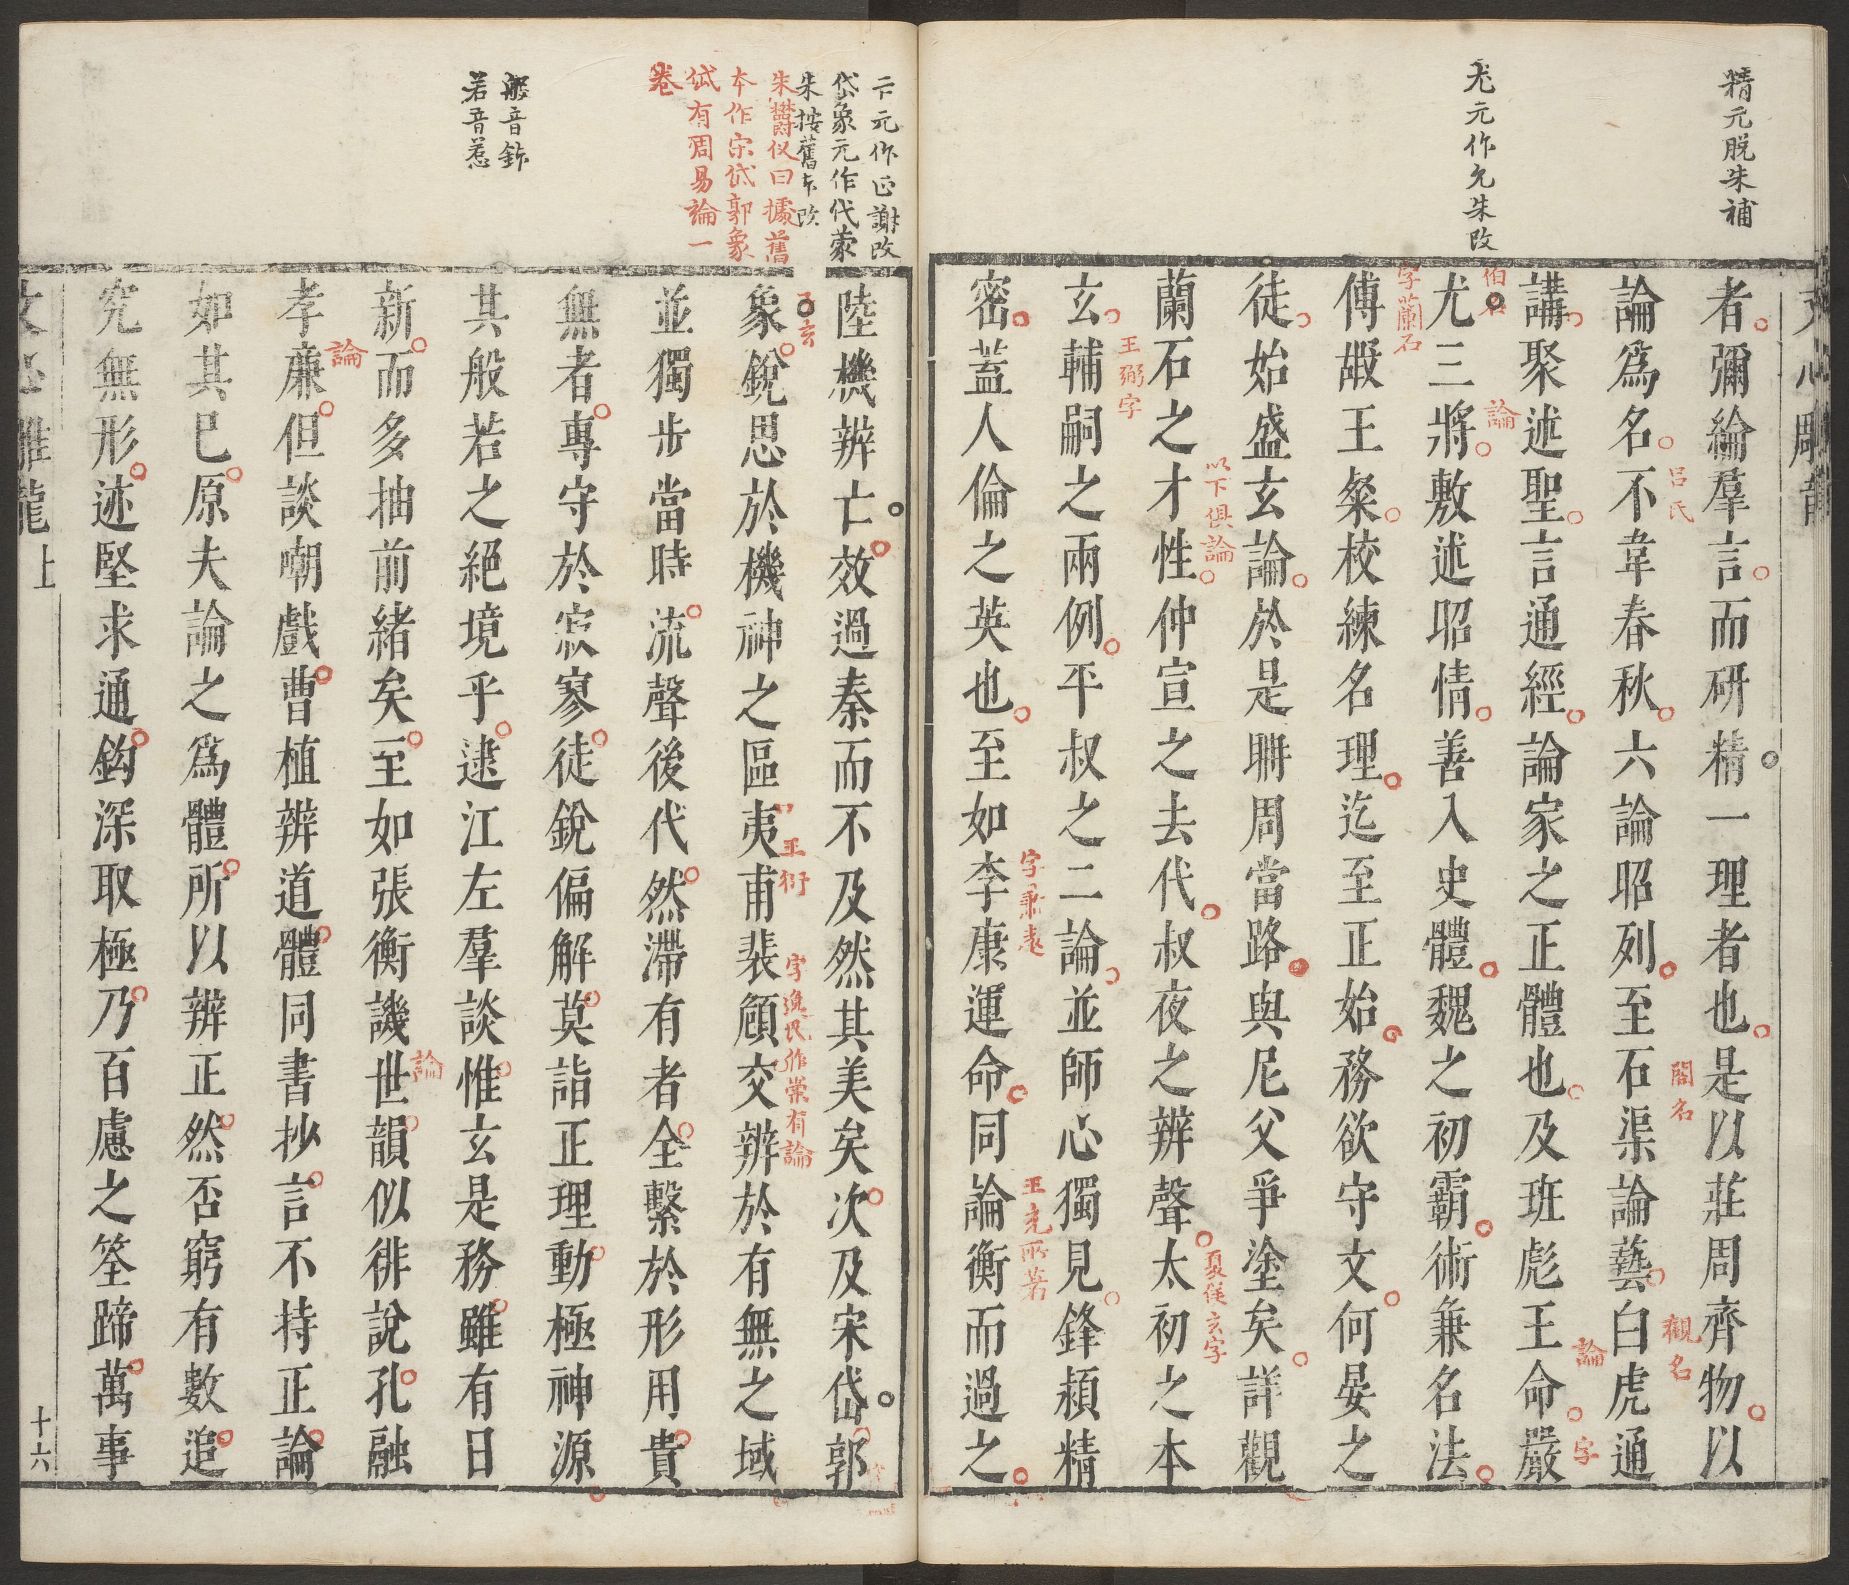 精元脫朱補
尤元作允朱改
文心雕龍
者彌綸羣言而硏精一理者也是以莊周齊物以
論爲名不韋春秋六論昭列至石渠論藝白虎通
呂氏
閣名
觀名
講聚述聖言通經論家之正體也及班彪王命嚴
論
字
尤三將敷述昭情善入史體魏之初霸術兼名法
伯石
論
傅嘏王粲校練名理迄至正始務欲守文何晏之
字蘭石
徒始盛玄論於是聃周當路與尼父爭塗矣詳觀
蘭石之才性仲宣之去代叔夜之辨聲太初之本
以下俱論
夏侯玄字
玄輔嗣之兩例平叔之二論並師心獨見鋒穎精
王弼字
密蓋人倫之英也至如李康運命同論衡而過之
字蕭遠
王充所著
亡元作正謝改
岱象元作代蒙
朱按舊本改
朱鬱仪曰據舊
本作宗岱郭象
岱有周易論一
卷
般音鉢
若音惹
陸機辨亡效過秦而不及然其美矣次及宋岱郭
象銳思於機神之區夷甫裴頠交辨於有無之域
子玄
王衍
字逸民作崇有論
並獨步當時流聲後代然滯有者全繫於形用貴
無者專守於寂寥徒銳偏解莫詣正理動極神源
其般若之絕境乎逮江左羣談惟玄是務雖有日
新而多抽前緒矣至如張衡譏世韻似徘說孔融
論
孝廉但談嘲戲曹植辨道體同書抄言不持正論
論
如其已原夫論之爲體所以辨正然否窮有數追
究無形迹堅求通鈎深取極乃百慮之筌蹄萬事
文心雕龍上
十六